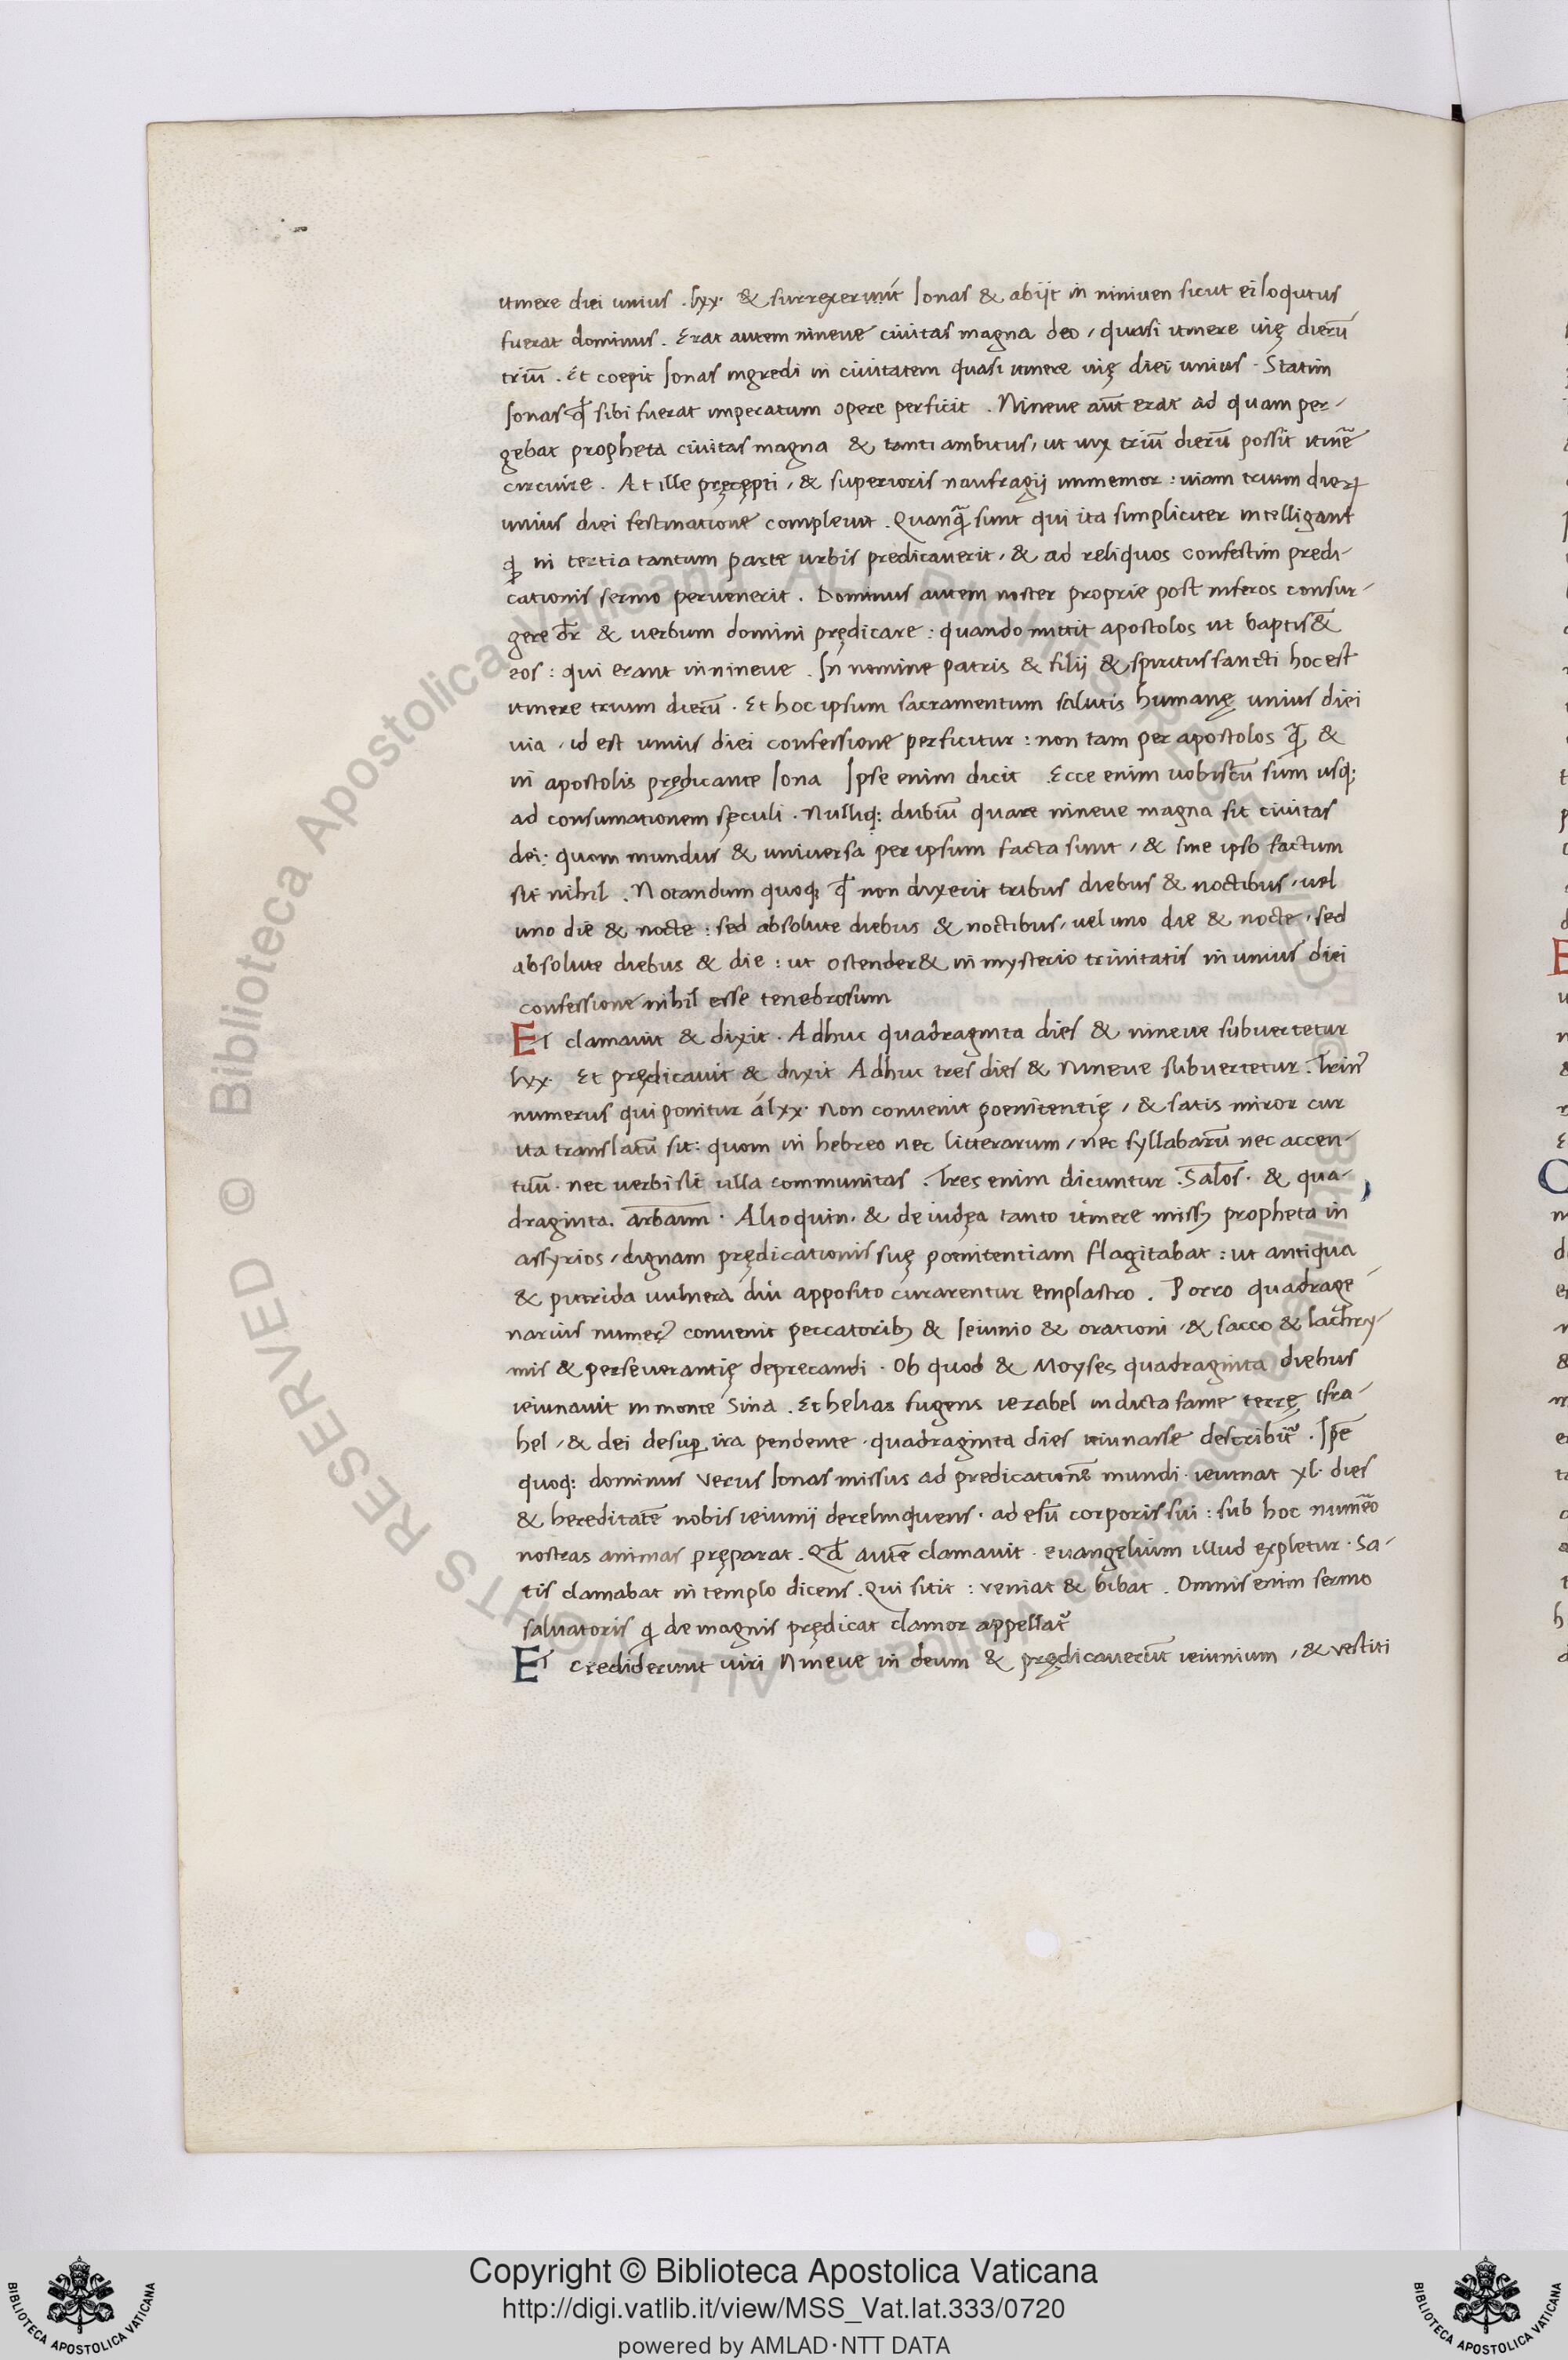 itinere diei unius .lxx. & surrexerunt Ionas & abijt in niniuen sicut ei loqutus
fuerat dominus. Erat autem nineue ciuitas magna deo, quasi itinere uię dierū
triū. Et coepit Ionas ingredi in ciuitatem quasi itinere uię diei unius. Statim
Ionas qđ sibi fuerat imperatum opere perficit. Nineue aūt erat ad quam per-
gebat propheta ciuitas magna & tanti ambitus, ut uix triū dierū possit itinē
circuire. At ille pręcępti, & superioris naufragij immemor: uiam trium dierꝝ
unius diei festinatione compleuit. Quanꝗ̄ sunt qui ita simpliciter intelligant
ꝙ in tertia tantum parte urbis predicauerit, & ad reliquos confestim predi-
cationis sermo peruenerit. Dominus autem noster proprie post inferos consur-
gere dr̄ & uerbum domini prędicare: quando mittit apostolos ut baptis&
eos: qui erant in nineue. In nomine patris & filij & spiritus sancti hoc est
itinere trium dierū. Et hoc ipsum sacramentum salutis humanę unius diei
uia, id est unius diei confessione perficitur: non tam per apostolos ꝗ̄, &
in apostolis prędicante Iona Ipse enim dicit Ecce enim uobiscū sum usq;
ad consumationem sęculi. Nulliq; dubiū quare nineue magna sit ciuitas
dei: quom mundus & uniuersa per ipsum facta sunt, & sine ipso factum
sit nihil. Notandum quoq; qđ non dixerit tribus diebus & noctibus, uel
uno die & nocte: sed absolute diebus & noctibus, uel uno die & nocte, sed
absolute diebus & die: ut ostender& in mysterio trinitatis in unius diei
confessione nihil esse tenebrosum
Et clamauit & dixit. Adhuc quadraginta dies & nineue subuertetur
lxx. Et prędicauit & dixit Adhuc tres dies & Nineue subuertetur. Trinꝰ
numerus qui ponitur á lxx. Non conuenit poenitentię, & satis miror cur
ita translatū sit: quom in hebreo nec litterarum, nec syllabarū nec accen-
tuū. nec uerbi sit ulla communitas. Tres enim dicuntur .Salos. & qua-
draginta. arbaim. Alioquin. & de iudęa tanto itinere missꝰ propheta in
assyrios, dignam prędicationis suę poenitentiam flagitabat: ut antiqua
& putrida uulnera diu apposito curarentur emplastro. Porro quadrage-
narius numerꝰ conuenit peccatoribꝫ & Ieiunio & orationi, & sacco & lachry-
mis & perseuerantię deprecandi. Ob quod & Moyses quadraginta diebus
ieiunauit in monte Sina. Et helias fugens iezabel indicta fame terrę isra-
hel, & dei desup̱ ira pendente, quadraginta dies ieiunasse describitᷣ. Ipē
quoq; dominus verus Ionas missus ad predicationē mundi. ieiunat xl. dies
& hereditatē nobis ieiunij derelinquens. ad esū corporis sui: sub hoc numēo
nostras animas pręparat. Qđ autē clamauit. euangelium illud expletur. Sa-
tis clamabat in templo dicens. Qui sitit: veniat & bibat. Omnis enim sermo
saluatoris ꝗ de magnis prędicat clamor appellatᷣ
Et crediderunt uiri Nineue in deum & prędicauerūt ieiunium, & vestiti
Copyright © Biblioteca Apostolica Vaticana
http://digi.vatlib.it/view/MSS_Vat.lat.333/0720
powered by AMLAD·NTT DATA